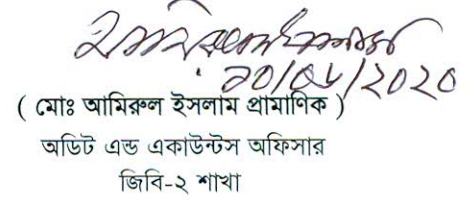 ২০/০৮/২০২০
( মোঃ আমিরুল ইসলাম প্রামাণিক )
অডিট এন্ড একাউন্টস অফিসার
জিবি-২ শাখা